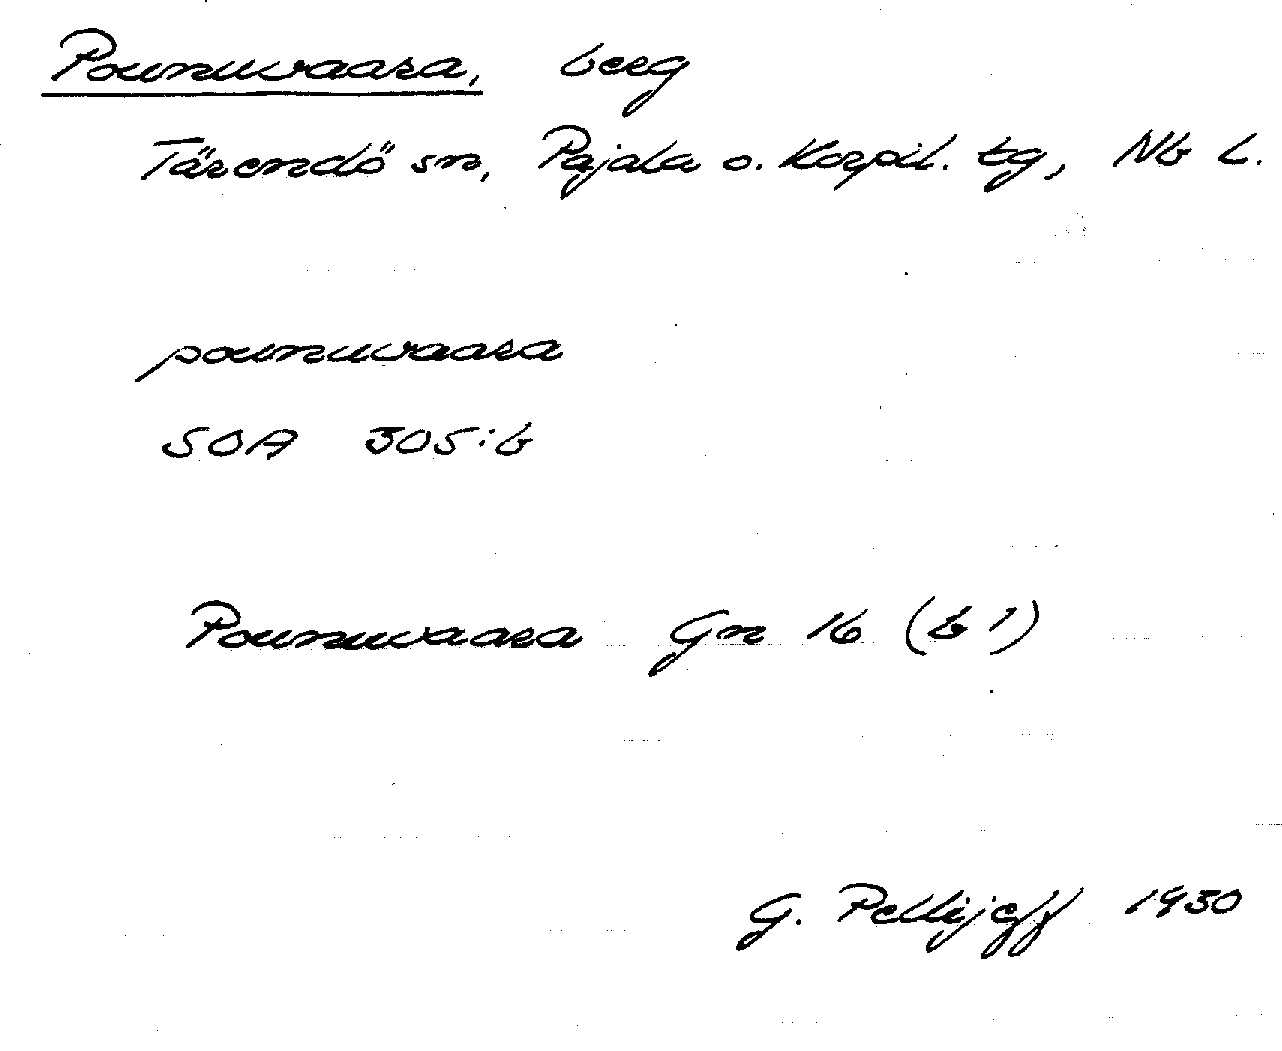 Pounuvaara, berg
Tärendö sn, Pajala o. Korpil. tg, Nb L.
pounuvaara
SOA 305:6
Pounuvaara Gn 16 (b 1)
G. Pellijeff 1930